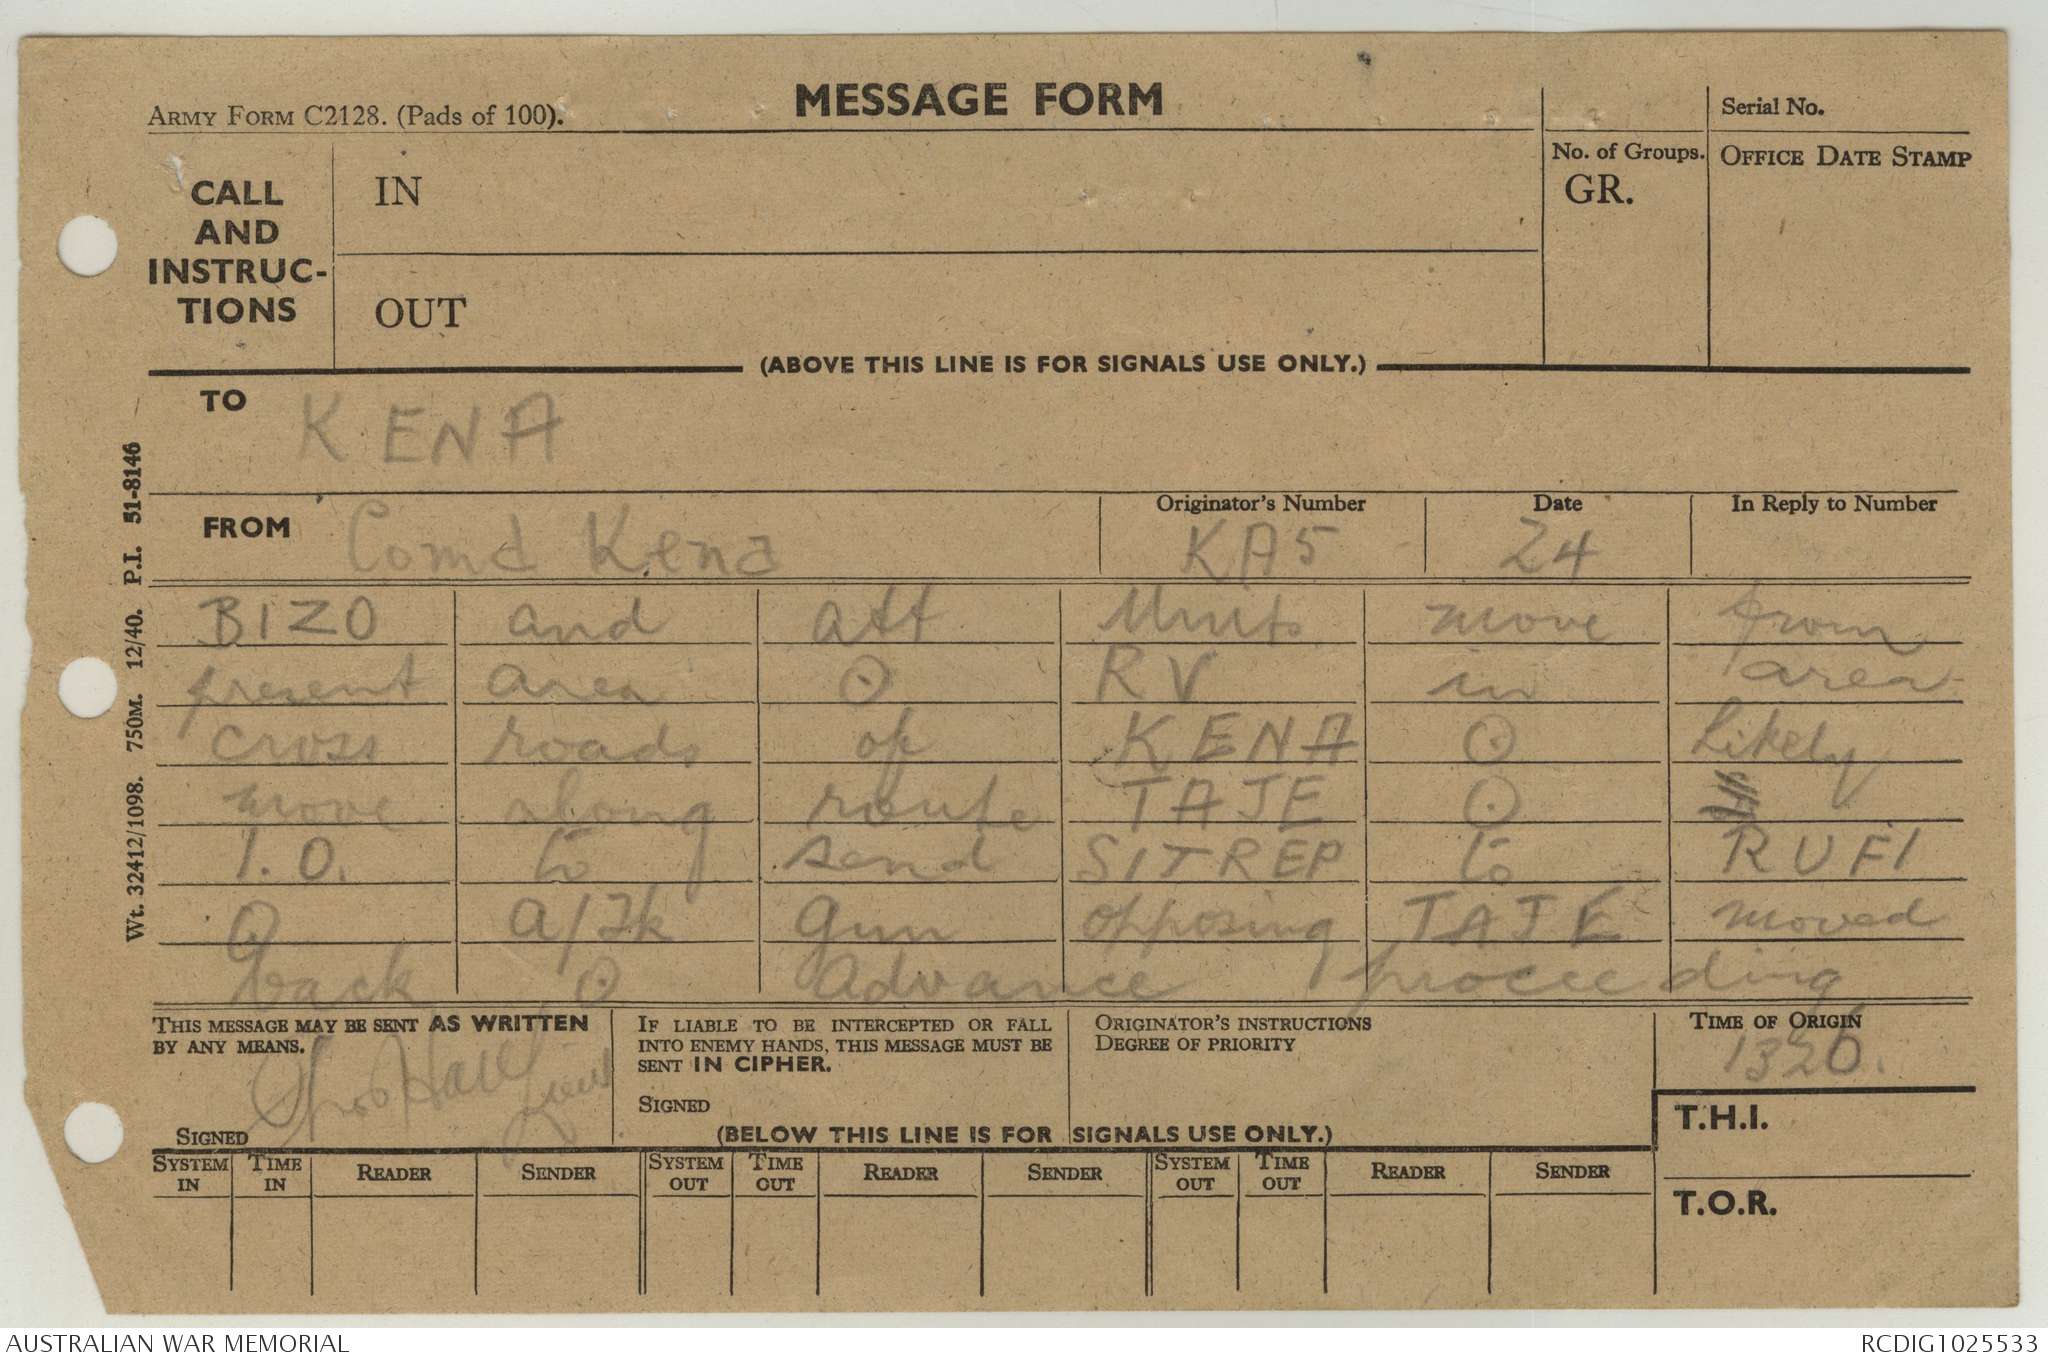 ARMY FORM C2128. (Pads of 100).
MESSAGE FORM
Serial No.
CALL AND INSTRUC-TIONS
IN
OUT
No. of Groups.
GR.
OFFICE DATE STAMP
(ABOVE THIS LINE IS FOR SIGNALS USE ONLY.)
TO KENA
FROM Comd Kena
Originator's Number KA5
Date 24
In Reply to Number
BIZO and att Units move from
present area ⊙ RV in area
cross roads of KENA ⊙ Likely
move along route TAJE ⊙
I.O. to send SITREP to RUFI
⊙ A/Tk gun opposing TAJE moved
back ⊙ Advance proceeding
Wt. 32412/1098. 750M. 12/40. P.I. 51-8146
THIS MESSAGE MAY BE SENT AS WRITTEN
BY ANY MEANS.
SIGNED
IF LIABLE TO BE INTERCEPTED OR FALL
INTO ENEMY HANDS, THIS MESSAGE MUST BE
SENT IN CIPHER.
SIGNED
ORIGINATOR'S INSTRUCTIONS
DEGREE OF PRIORITY
TIME OF ORIGIN
1320.
T.H.I.
T.O.R.
(BELOW THIS LINE IS FOR SIGNALS USE ONLY.)
SYSTEM IN TIME IN READER SENDER SYSTEM OUT TIME OUT READER SENDER SYSTEM OUT TIME OUT READER SENDER
AUSTRALIAN WAR MEMORIAL
RCDIG1025533